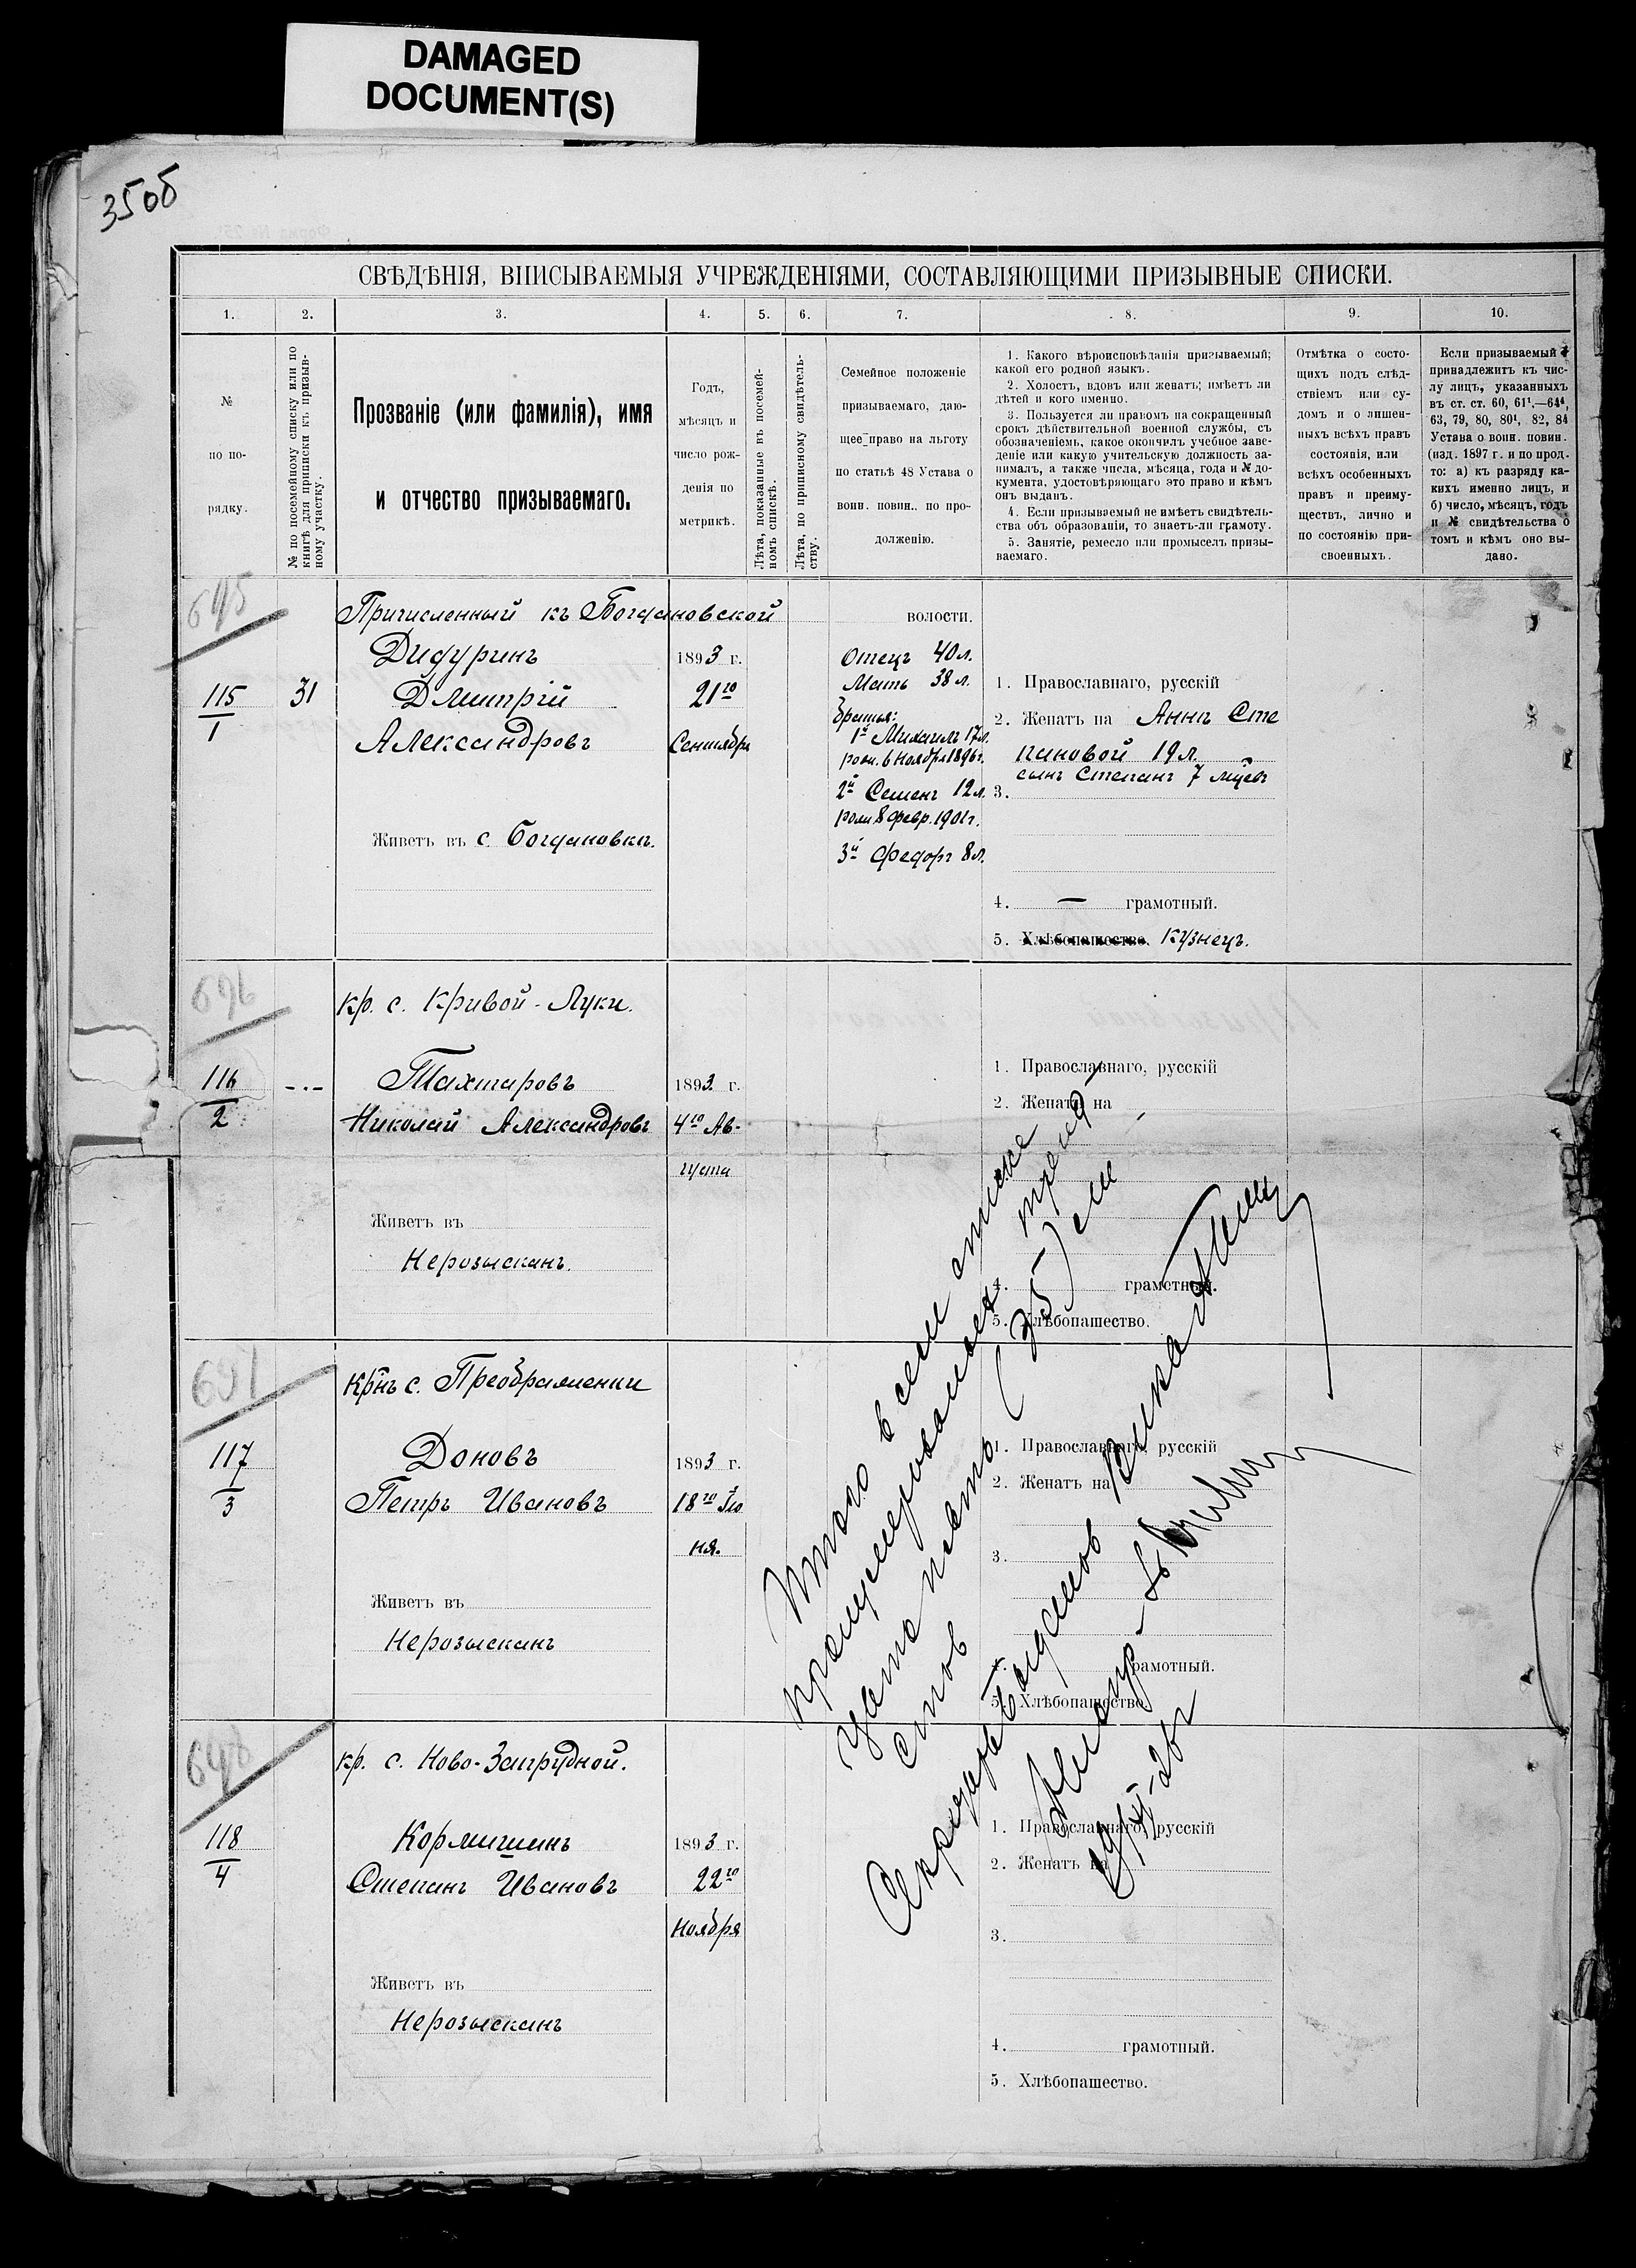 DAMAGED
DOCUMENT(S)
350б
СВѢДѢНІЯ, ВПИСЫВАЕМЫЯ УЧРЕЖДЕНІЯМИ, СОСТАВЛЯЮЩИМИ ПРИЗЫВНЫЕ СПИСКИ.
1. 2. 3. 4. 5. 6. 7. 8. 9. 10.
№
по по-
рядку.
№ по посемейному списку или по
книгѣ для приписки къ призыв-
ному участку.
Прозваніе (или фамилія), имя
и отчество призываемаго.
Годъ,
мѣсяцъ и
число рож-
денія по
метрикѣ.
Лѣта, показанные въ посемей-
номъ спискѣ.
Лѣта, по приписному свидѣтель-
ству.
Семейное положеніе
призываемаго, даю-
щее право на льготу
по статьѣ 48 Устава о
воин. повин.. по про-
долженію.
1. Какого вѣроисповѣданія призываемый;
какой его родной языкъ.
2. Холостъ, вдовъ или женатъ; имѣетъ ли
дѣтей и кого именно.
3. Пользуется ли правомъ на сокращенный
срокъ дѣйствительной военной службы, съ
обозначеніемъ, какое окончилъ учебное заве-
деніе или какую учительскую должность за-
нималъ, а также числа, мѣсяца, года и № до-
кумента, удостовѣряющаго это право и кѣмъ
онъ выданъ.
4. Если призываемый не имѣетъ свидѣтель-
ства объ образованіи, то знаетъ-ли грамоту.
5. Занятіе, ремесло или промыселъ призы-
ваемаго.
Отмѣтка о состо-
ящихъ подъ слѣд-
ствіемъ или су-
домъ и о лишен-
ныхъ всѣхъ правъ
состоянія, или
всѣхъ особенныхъ
правъ и преиму-
ществъ, лично и
по состоянію при-
своенныхъ.
Если призываемый
принадлежитъ къ чис-
лу лицъ, указанныхъ
въ ст. ст. 60, 61¹,—64⁴,
63, 79, 80, 80¹, 82, 84
Устава о воин. повин.
(изд. 1897 г. и по прод.
то: а) къ разряду ка-
кихъ именно лицъ, и
б) число, мѣсяцъ, годъ
и № свидѣтельства о
томъ и кѣмъ оно вы-
дано.
Причисленный къ Богдановской волости.
115
1
31
Дидуринъ
Дмитрій
Александровъ
Живетъ въ с. Богдановкѣ.
1893 г.
21го
Сентября
Отецъ 40 л.
Мать 38 л.
братья:
1й Михаилъ 17 л.
роди. 6 Ноября 1896 г.
2й Семенъ 12 л.
роди. 8 Февр. 1901 г.
3й Федоръ 8 л.
1. Православнаго, русскій
2. Женатъ на Аннѣ Сте
пановой 19 л.
сынъ Степанъ 7 мцевъ
3.
4. — грамотный.
5. Хлѣбопашество. Кузнецъ.
696
кр. с. Кривой-Луки.
116
2
-"-
Тахтаровъ
Николай Александровъ
Живетъ въ
Нерозысканъ.
1893 г.
4го Ав-
густа
1. Православнаго, русскій
2. Женатъ на
4. грамотный.
5. Хлѣбопашество.
697
Крнъ с. Преображенки
117
3
Доновъ
Петръ Ивановъ
Живетъ въ
Нерозысканъ
1893 г.
18го Ію
ня.
1. Православнаго, русскій
2. Женатъ на
3.
грамотный.
5. Хлѣбопашество.
698
кр. с. Ново-Запрудной.
118
4
Кормишинъ
Степанъ Ивановъ
Живетъ въ
Нерозысканъ
1893 г.
22го
Ноября
1. Православнаго, русскій
2. Женатъ на
3.
4. грамотный.
5. Хлѣбопашество.
Итого в сем списке
пронумерованных триста
пять (35) лис
тов
Секретарь